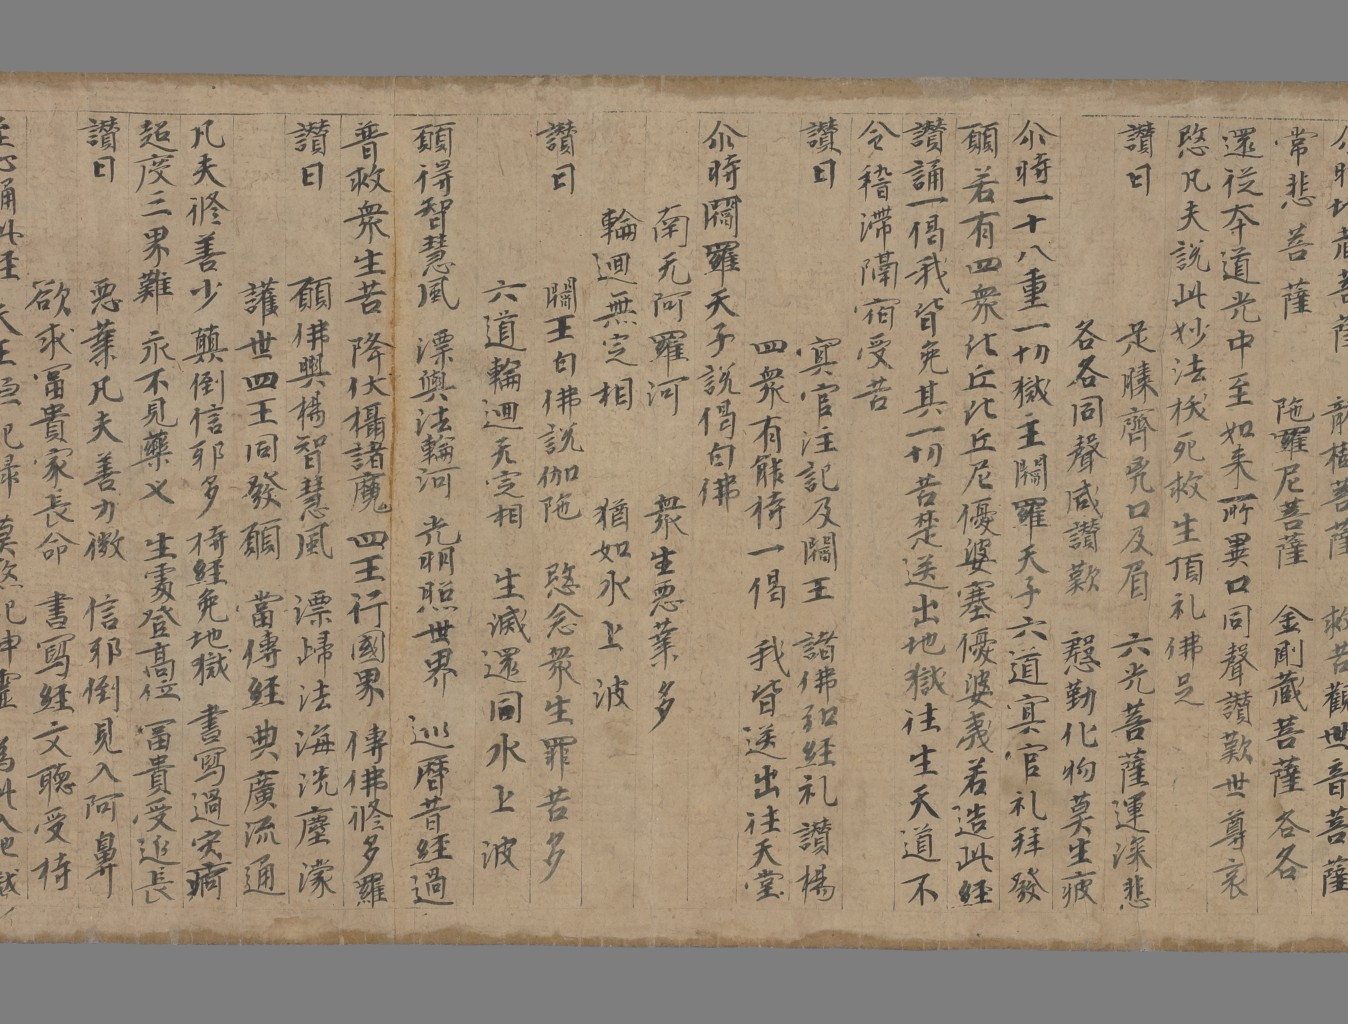 尒時地藏菩薩 龍樹菩薩 救苦觀世音菩薩
常悲菩薩 陁羅尼菩薩 金剛藏菩薩 各各
還從本道光中至如来所異口同聲讃歎世尊哀
愍凡夫說此妙法拔死救生頂礼佛足
讃曰
足膝齊兇口及眉 六光菩薩運深悲
各各同聲咸讃歎 慇勤化物莫生疲
尒時一十八重一切獄主閻羅天子六道冥官礼拜發
願若有四衆比丘比丘尼優婆塞優婆夷若造此經
讃誦一偈我皆免其一切苦楚送出地獄往生天道不
令稽滯隔宿受苦
讃曰
冥官注記及閻王 諸佛弘經礼讃揚
四衆有能持一偈 我皆送出往天堂
尒時閻羅天子說偈白佛
南无阿羅河 衆生惡業多
輪迴無定相 猶如水上波
讃曰
閻王白佛說伽陁 愍念衆生罪苦多
六道輪迴无定相 生滅還同水上波
願得智慧風 漂與法輪河 光明照世界 巡曆昔經過
普救衆生苦 降伏攝諸魔 四王行國界 傳佛修多羅
讃曰
願佛興揚智慧風 漂歸法海洗塵濛
護世四王同發願 當傳經典廣流通
凡夫修善少 顛倒信邪多 持經免地獄 書寫過灾痾
超度三界難 永不見藥叉 生處登高位 冨貴受延長
讃曰
惡業凡夫善力微 信邪倒見入阿鼻
欲求冨貴家長命 書寫經文聽受持
至心誦此經 天王恒記錄 莫煞祀神靈 為此入地獄